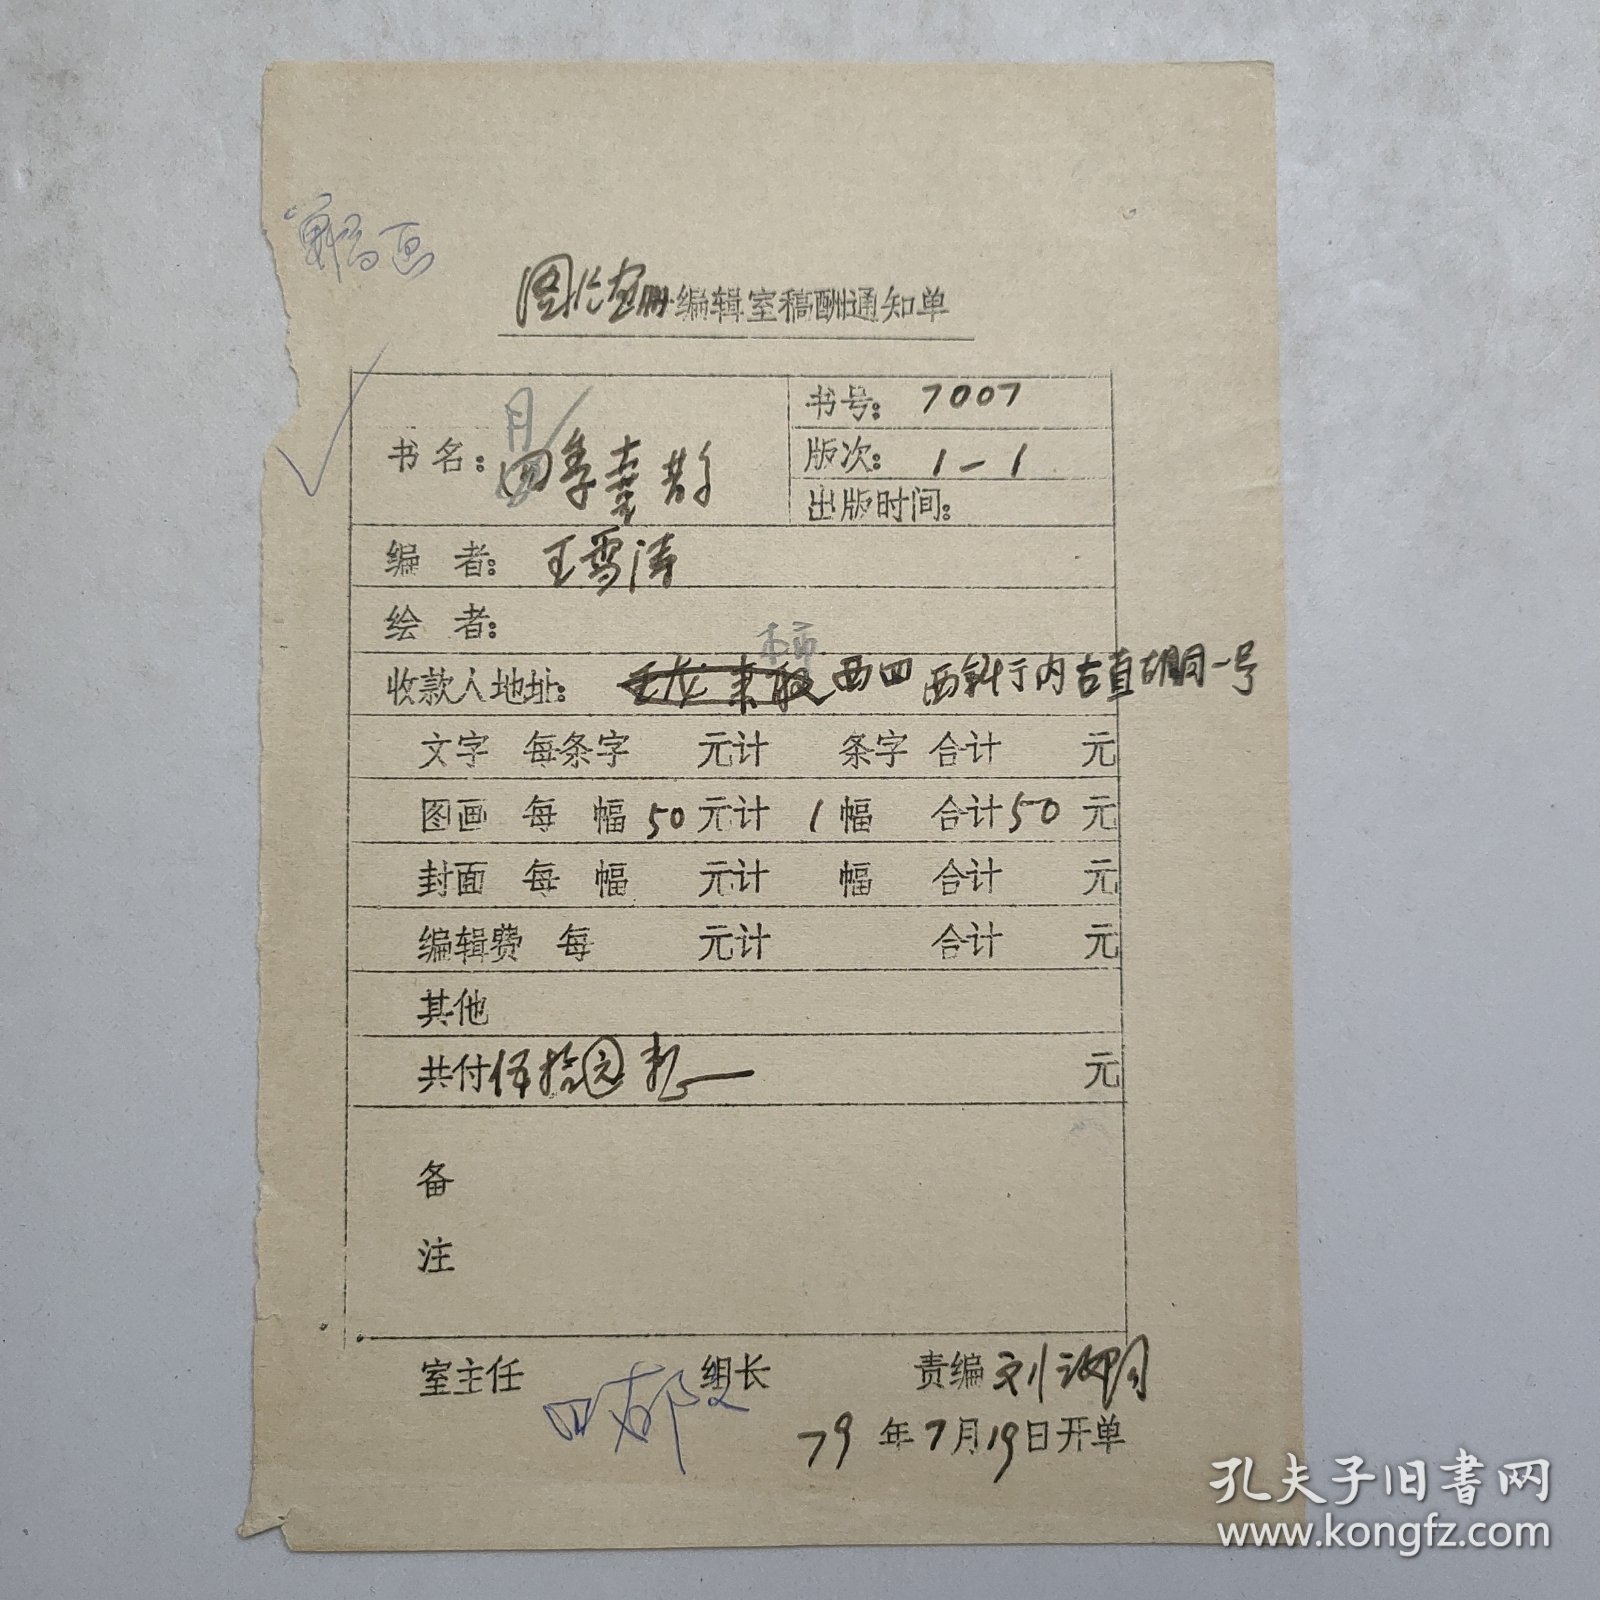 编辑室稿酬通知单
书名： 月季
书号：7007
版次：1—1
出版时间：
编 者：王雪涛
绘 者：
收款人地址： 西四 西斜街内古直胡同一号
文字 每条字 元计 条字 合计 元
图画 每 幅 50 元计 1 幅 合计 50 元
封面 每 幅 元计 幅 合计 元
编辑费 每 元计 合计 元
其他
共付 伍拾元 元
备
注
室主任 田郁文 组长 责编 刘
79 年 7 月 19 日开单
孔夫子旧书网
www.kongfz.com